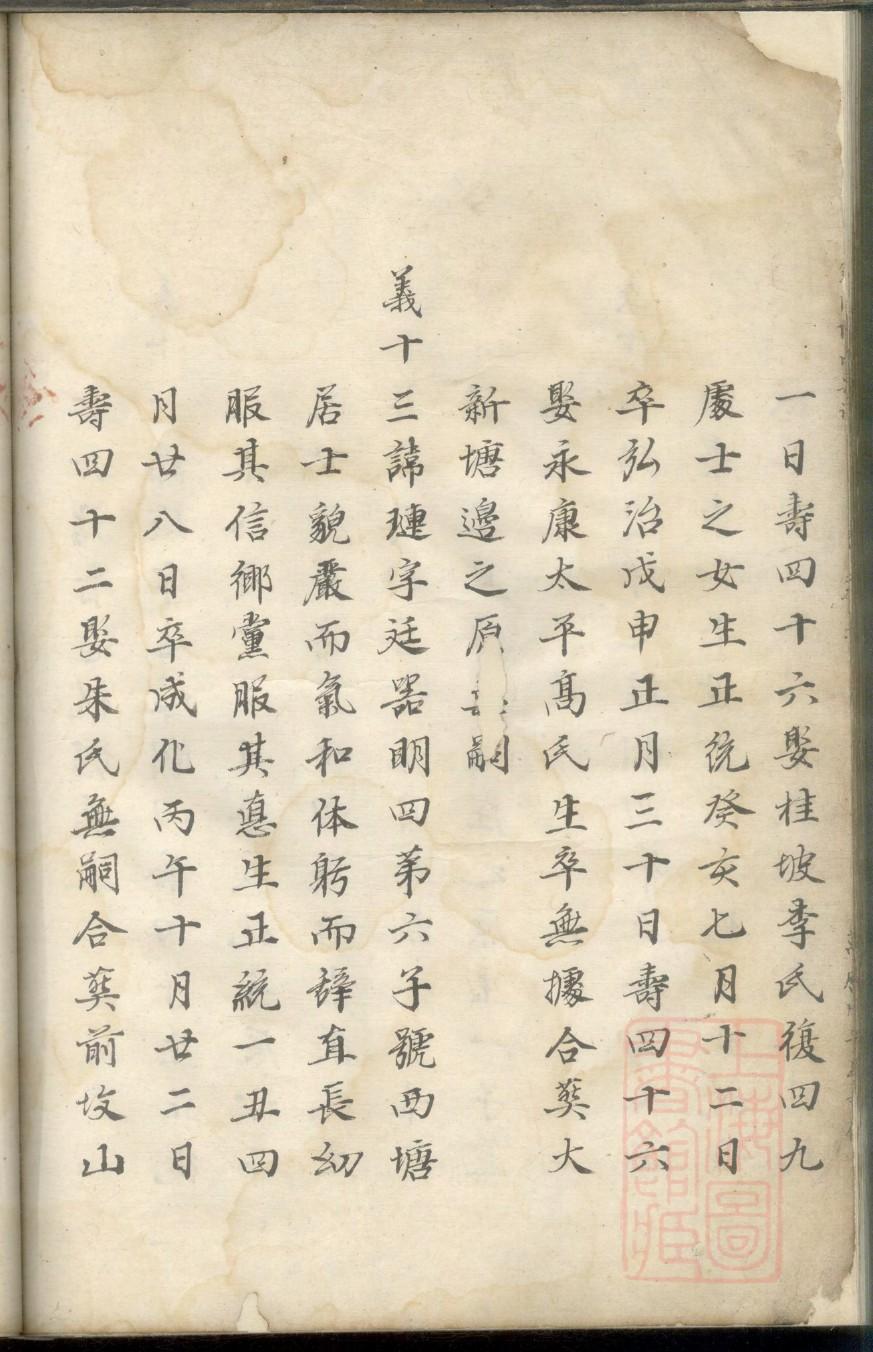 一日壽四十六娶桂坡李氏復四九
處士之女生正统癸亥七月十二日
卒弘治戊申正月三十日壽四十六
娶永康太平高氏生卒無據合葬大
新塘邊之原 嗣
義十三諱璉字廷器明四第六子號西塘
居士貌嚴而氣和体躬而辞直長幼
服其信鄉黨服其惪生正統一丑四
月廿八日卒成化丙午十月廿二日
壽四十二娶朱氏無嗣合葬前坟山
上海圖書館藏